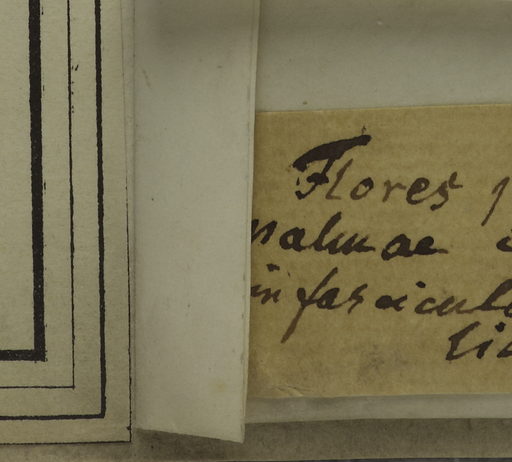 Flores
palmae
in fascicul